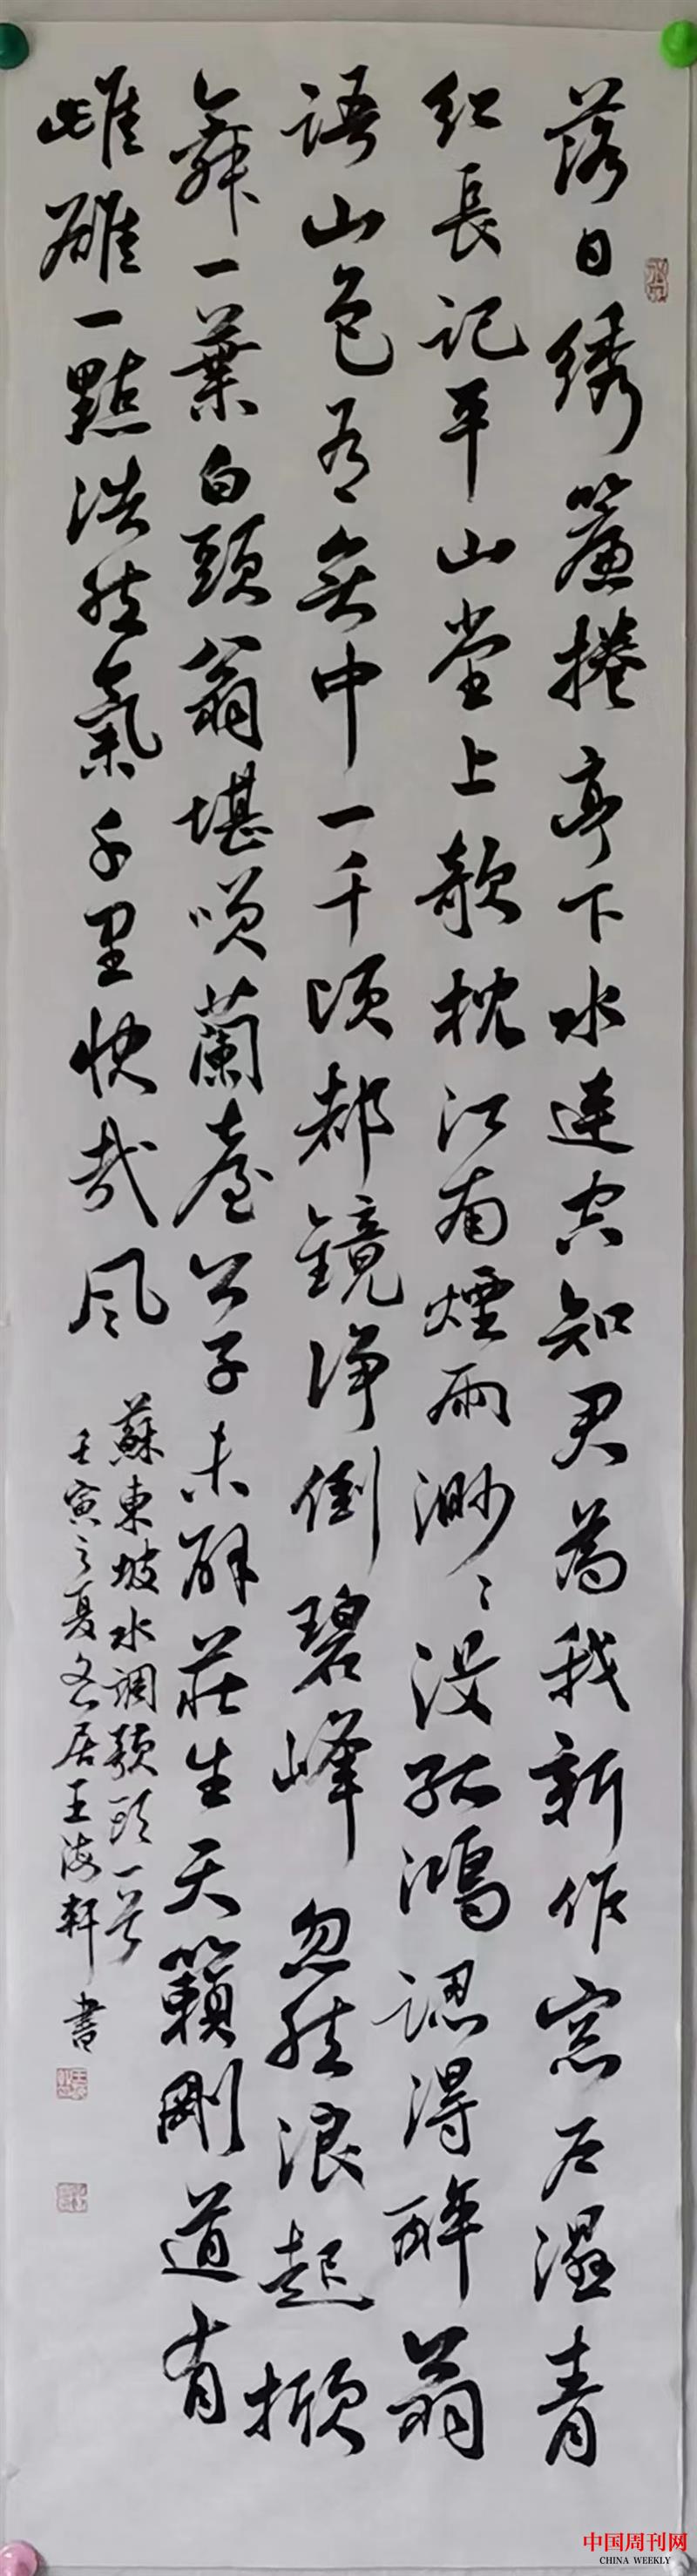 落日綉簾捲亭下水連空知君為我新作窓户濕青
紅長記平山堂上欹枕江南煙雨渺〻没孤鴻認得醉翁
語山色有無中一千頃都鏡浄倒碧峰忽然浪起掀
舞一葉白頭翁堪笑蘭臺公子未解莊生天籟剛道有
雌雄一點浩然氣千里快哉風
蘇東坡水調歌頭一首
壬寅之夏居王海軒書
中国周刊网
CHINA WEEKLY